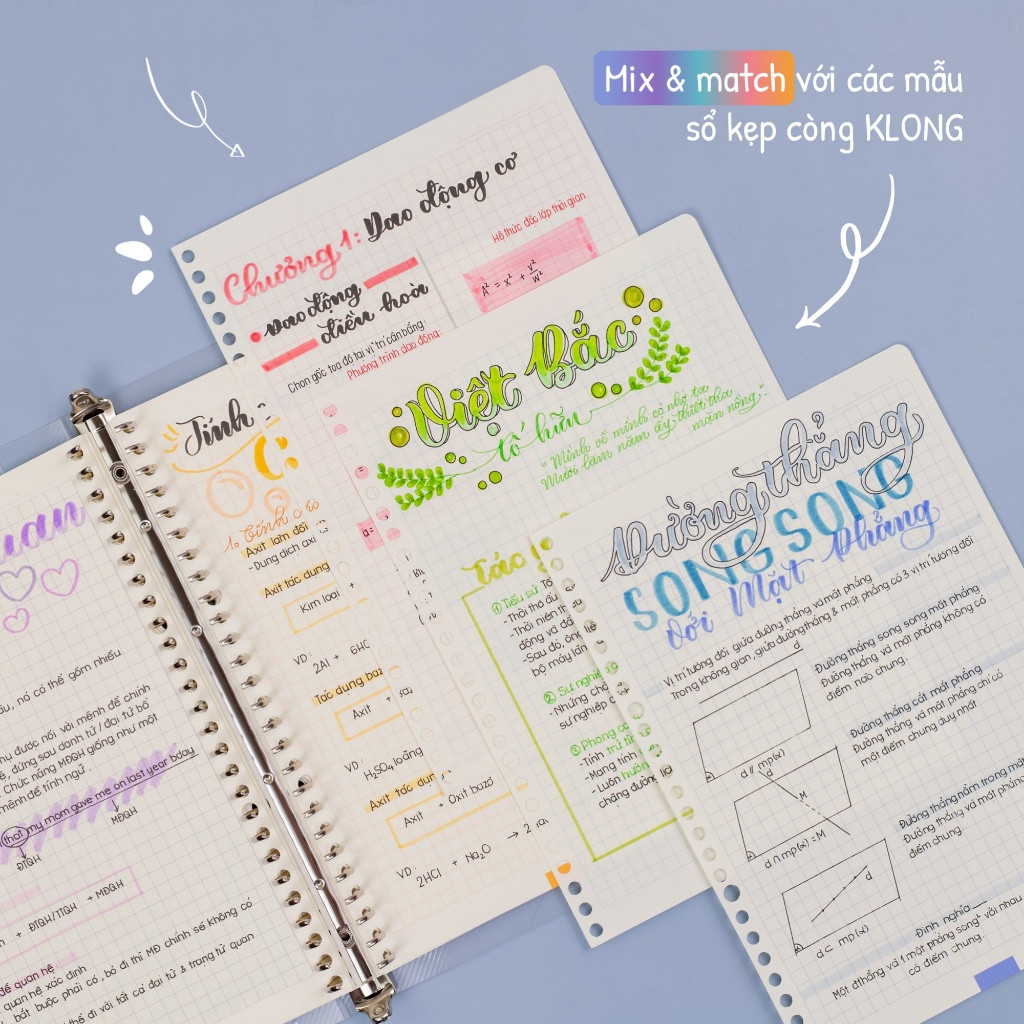 Mix & match với các mẫu
sổ kẹp còng KLONG
Chương 1: Dao động cơ
Hệ thức độc lập thời gian
A² = x² + v²/w²
Dao động
điều hoà
Chọn gốc toạ độ tại vị trí cân bằng
Phương trình dao động:
Việt Bắc
tố hữu
"Mình về mình có nhớ ta
Mười lăm năm ấy thiết tha
mặn nồng."
Đường thẳng
SONG SONG
với Mặt Phẳng
Vị trí tương đối giữa đường thẳng và mặt phẳng
Trong không gian, giữa đường thẳng & mặt phẳng có 3 vị trí tương đối
d
d // mp(α)
Đường thẳng song song mặt phẳng
Đường thẳng và mặt phẳng không có
điểm nào chung.
d
M
d ∩ mp(α) = M
Đường thẳng cắt mặt phẳng
Đường thẳng và mặt phẳng chỉ có
một điểm chung duy nhất
d
d ⊂ mp(α)
Đường thẳng nằm trong mặt
Đường thẳng và mặt phẳng
điểm chung.
Định nghĩa
Một đthẳng và 1 mặt phẳng song² với nhau
có điểm chung.
Tác
① Tiểu sử
- Thời thơ ấu
- Thời niên th
động và đ
- Sau đó, ông
bộ máy lãn
② Sự nghiệp
- Những ch
sự nghiệp c
③ Phong c
- Tính trữ tì
- Mang tính
- Luôn hướn
chặng đường
Tính
C:
1.
Axit làm đổi
- Dung dịch axi
Axit tác dụng
Kim loại +
VD:
2Al + 6HC
Tác dụng baz
Axit +
VD:
H₂SO₄ loãng
Axit tác dụn
Axit + Oxit bazơ
VD:
2HCl + Na₂O → 2
uan
ấu, nó có thể gồm nhiều
hụ được nối với mệnh đề chính
ệ, đứng sau danh từ / đại từ bổ
Chức năng MĐQH giống như một
mệnh đề tính ngữ.
that my mom gave me on last year bday
MĐQH
ĐTQH
+ ĐTQH/TTQH + MĐQH
đề quan hệ
quan hệ xác định
bắt buộc phải có, bỏ đi thì MĐ chính sẽ không có
thể đi với tất cả đại từ & trạng từ quan